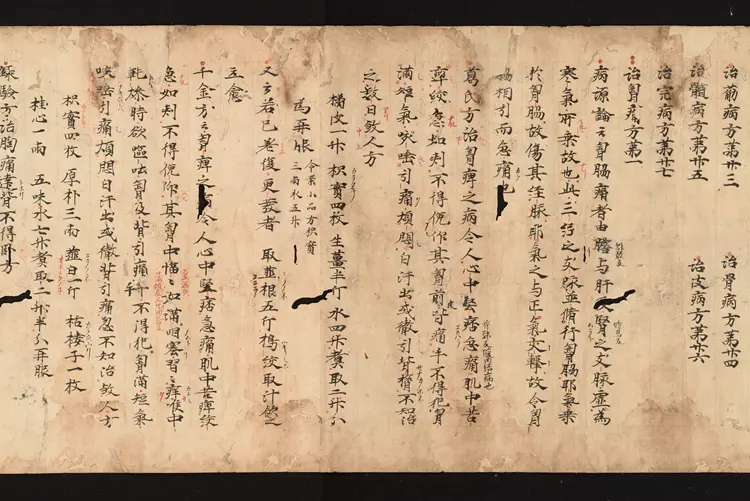 治筋病方第廿三　治骨病方第廿四
治髓病方第廿五　治皮病方第廿六
治完病方第廿七
治胷痛方第一
病源論云胷脇痛者由膽与肝及腎之支脉虚為
寒氣所乘故也此三經之支脉並循行胷脇邪氣乘
於胷脇故傷其經脉邪氣之与正氣交擊故令胷
脇相引而急痛也
葛氏方治胷痺之病令人心中堅痞忽痛肌中苦
痺絞急如刾不得俛仰其胷前皆痛手不得犯胷
滿短氣咳嗽引痛煩悶自汗出或徹引背膂不知治
之數日煞人方
橘皮一升　枳實四枚　生薑半斤　水四升煑取二升分
為再服　今案小品方枳實三兩水五升
又云若已差復更發者　取韮根五斤搗絞取汁飲之
立愈
千金方云胷痺之病令人心中堅痞急痛肌中苦痺絞
急如刾不得俛仰其胷中愊々如滿咽塞習々癢喉中
乾燥時欲嘔吐胷及背引痛手不得犯胷滿短氣
咳嗽引痛煩悶自汗出或徹背引痛忽不知治煞人方
枳實四枚　厚朴三兩　薤白一斤　栝樓子一枚
桂心一兩　五味水七升煑取二升半分再服
錄驗方治胸痛達背不得卧方